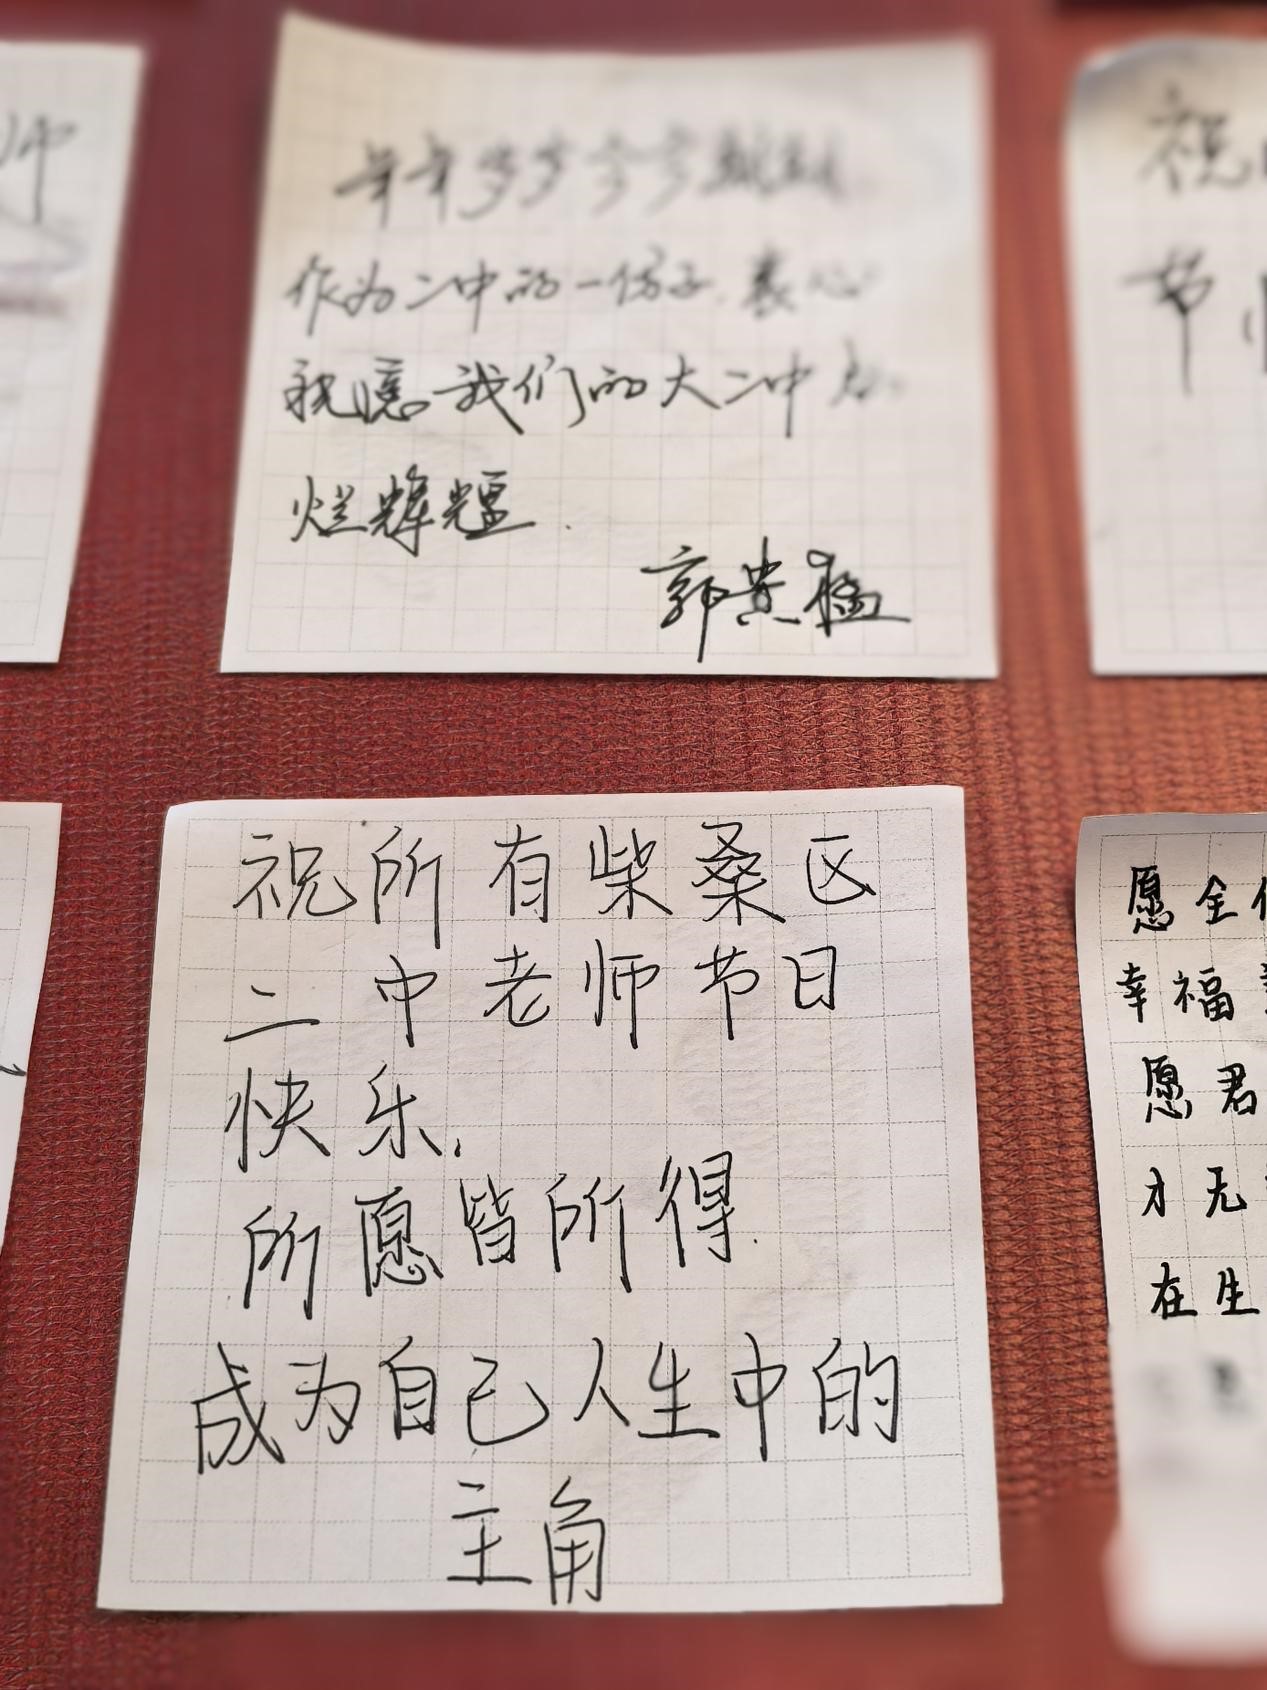 师
年年岁岁
作为二中的一份子,衷心
祝愿我们的大二中
烂辉煌.
郭贵
祝
节
祝所有柴桑区
二中老师节日
快乐.
所愿皆所得.
成为自己人生中的
主角
愿全
幸福
愿君
才无
在生